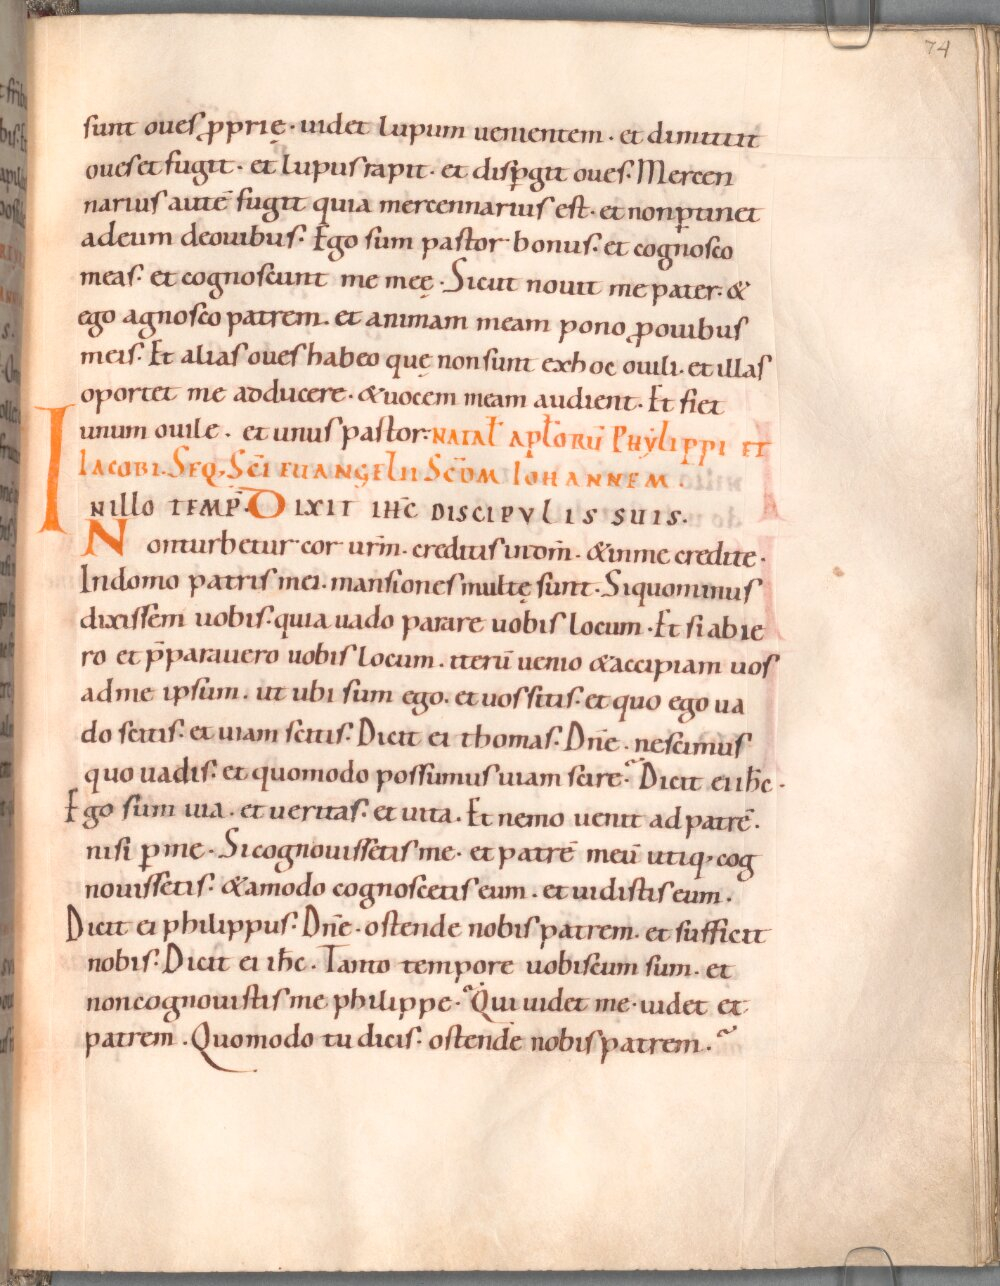 74
sunt oues ꝓprię · uidet lupum uenientem · et dimittit
oues et fugit · et lupus rapit · et disꝑgit oues · Mercen
narius autē fugit quia mercennarius est · et non ꝑtinet
ad eum de ouibus · Ego sum pastor bonus · et cognosco
meas · et cognoscunt me meę · Sicut nouit me pater · &
ego agnosco patrem · et animam meam pono ꝓ ouibus
meis · Et alias oues habeo quę non sunt ex hoc ouili · et illas
oportet me adducere · & uocem meam audient · Et fiet
unum ouile · et unus pastor · NATAƚ APƚORŪ PHYLIPPI ET
IACOBI · SEQ · SC̄I EUANGELII SC̄DM IOHANNEM
IN ILLO TEMP̄ · DIXIT IHC̄ DISCIPVLIS SUIS ·
Non turbetur cor ur̄m · creditis in dm̄ · & in me credite ·
In domo patris mei · mansiones multę sunt · Si quo minus
dixissem uobis · quia uado parare uobis locum · Et si abie
ro et p̄parauero uobis locum · iterū uenio & accipiam uos
ad me ipsum · ut ubi sum ego · et uos sitis · et quo ego ua
do scitis · et uiam scitis · Dicit ei thomas · Dn̄e · nescimus
quo uadis · et quomodo possumus uiam scire · Dicit ei ihc̄ ·
Ego sum uia · et ueritas · et uita · Et nemo uenit ad patrē ·
nisi ꝑ me · Si cognouissetis me · et patrē meū utiq; cog
nouissetis · & amodo cognoscetis eum · et uidistis eum ·
Dicit ei philippus · Dn̄e · ostende nobis patrem · et sufficit
nobis · Dicit ei ihc̄ · Tanto tempore uobiscum sum · et
non cognouistis me philippe · Qui uidet me · uidet et
patrem · Quomodo tu dicis · ostende nobis patrem ·